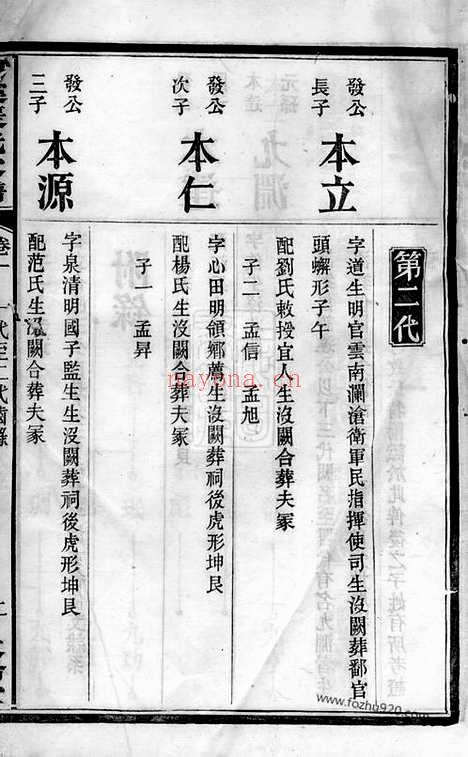 第二代
發公
長子
本立
字道生明官雲南瀾滄衛軍民指揮使司生沒闕葬鄱官
頭蠏形子午
配劉氏敕授宜人生沒闕合葬夫冢
子二 孟信 孟旭
發公
次子
本仁
字心田明領鄉薦生沒闕葬祠後虎形坤艮
配楊氏生沒闕合葬夫冢
子一 孟昇
發公
三子
本源
字泉清明國子監生生沒闕葬祠後虎形坤艮
配范氏生沒闕合葬夫冢
卷一 一代至二代齒錄
nayona.cn
www.fozhu920.com